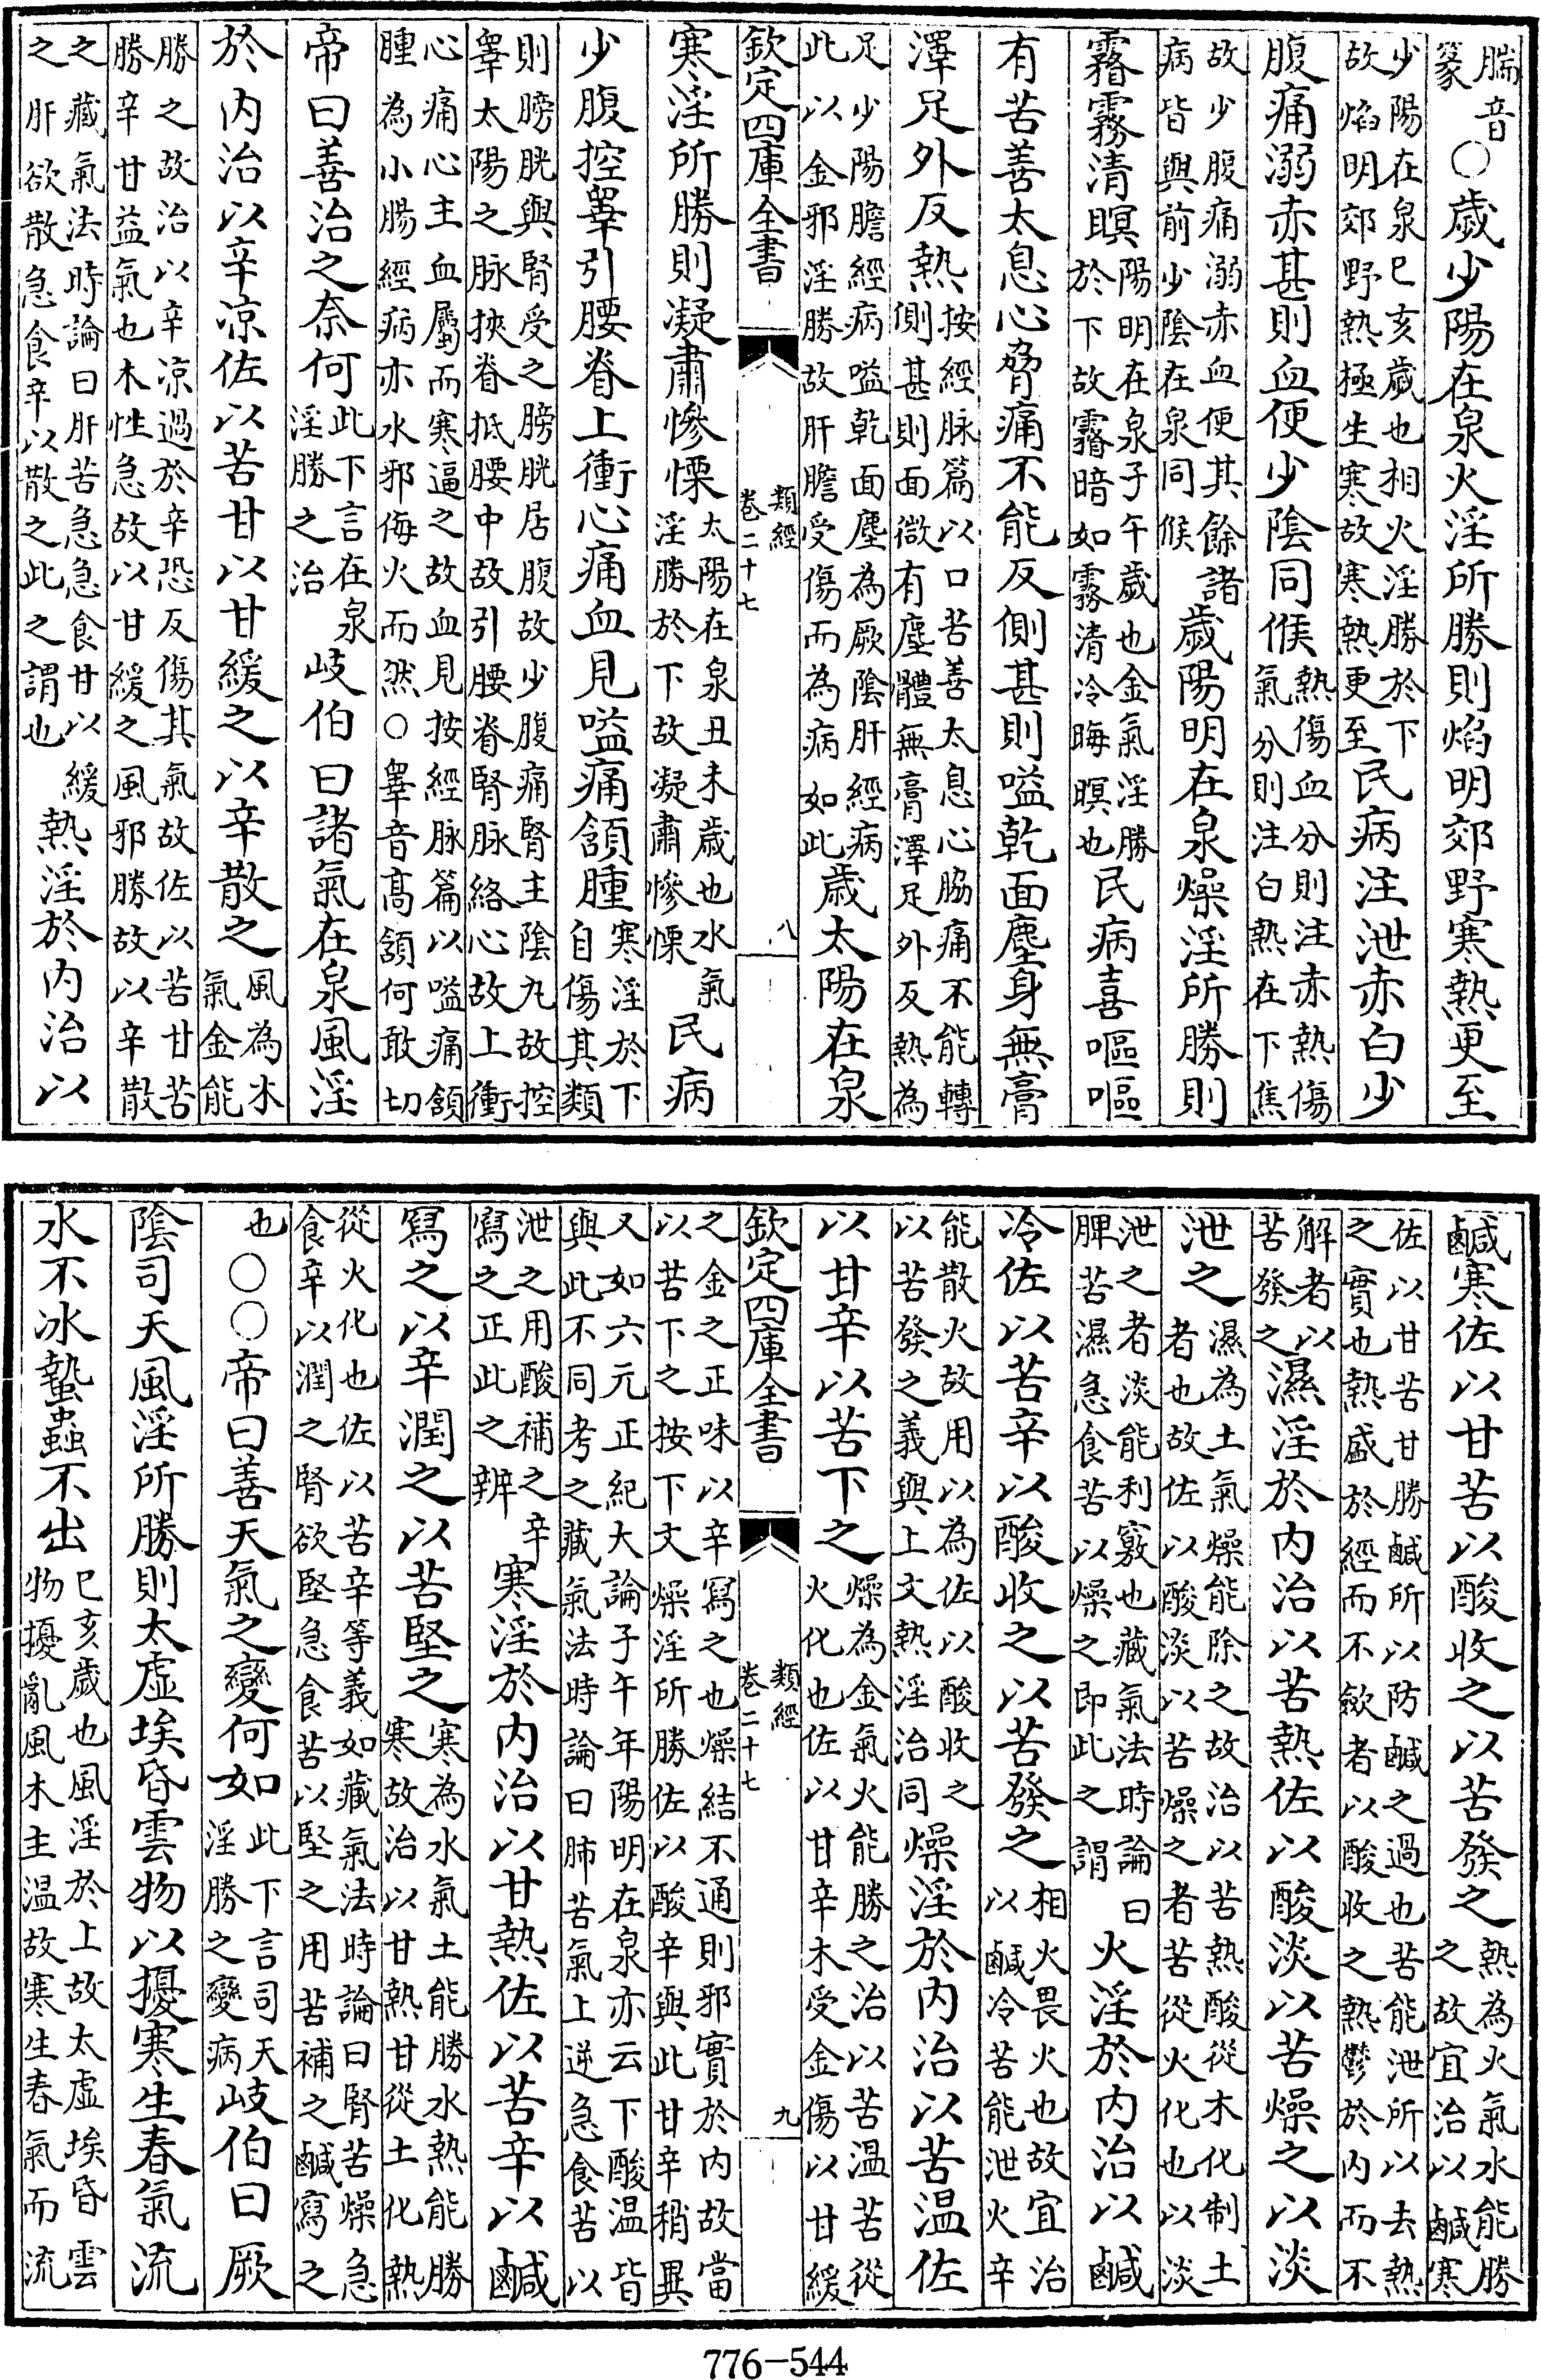 腨音篆○歲少陽在泉火淫所勝則焰明郊野寒熱更至
少陽在泉巳亥歲也相火淫勝於下故焰明郊野熱極生寒故寒熱更至民病注泄赤白少
腹痛溺赤甚則血便少陰同候熱傷血分則注赤熱傷氣分則注白熱在下焦
故少腹痛溺赤血便其餘諸病皆與前少陰在泉同候歲陽明在泉燥淫所勝則
霿霧清暝陽明在泉子午歲也金氣淫勝於下故霿暗如霧清冷晦暝也民病喜嘔嘔
有苦善太息心脅痛不能反側甚則嗌乾面塵身無膏
澤足外反熱按經脉篇以口苦善太息心脇痛不能轉側甚則面微有塵體無膏澤足外反熱為
足少陽膽經病嗌乾面塵為厥陰肝經病此以金邪淫勝故肝膽受傷而為病如此歲太陽在泉
欽定四庫全書 類經 卷二十七 八
寒淫所勝則凝肅慘慄太陽在泉丑未歲也水氣淫勝於下故凝肅慘慄民病
少腹控睾引腰脊上衝心痛血見嗌痛頷腫寒淫於下自傷其類
則膀胱與腎受之膀胱居腹故少腹痛腎主陰丸故控睾太陽之脉挾脊抵腰中故引腰脊腎脉絡心故上衝
心痛心主血屬而寒逼之故血見按經脉篇以嗌痛頷腫為小腸經病亦水邪侮火而然○睾音高頷何敢切
帝曰善治之奈何此下言在泉淫勝之治岐伯曰諸氣在泉風淫
於内治以辛凉佐以苦甘以甘緩之以辛散之風為木氣金能
勝之故治以辛凉過於辛恐反傷其氣故佐以苦甘苦勝辛甘益氣也木性急故以甘緩之風邪勝故以辛散
之藏氣法時論曰肝苦急急食甘以緩之肝欲散急食辛以散之此之謂也熱淫於内治以
鹹寒佐以甘苦以酸收之以苦發之熱為火氣水能勝之故宜治以鹹寒
佐以甘苦甘勝鹹所以防鹹之過也苦能泄所以去熱之實也熱盛於經而不斂者以酸收之熱鬱於内而不
解者以苦發之濕淫於内治以苦熱佐以酸淡以苦燥之以淡
泄之濕為土氣燥能除之故治以苦熱酸從木化制土者也故佐以酸淡以苦燥之者苦從火化也以淡
泄之者淡能利竅也藏氣法時論曰脾苦濕急食苦以燥之即此之謂火淫於内治以鹹
冷佐以苦辛以酸收之以苦發之相火畏火也故宜治以鹹冷苦能泄火辛
能散火故用以為佐以酸收之以苦發之義與上文熱淫治同燥淫於内治以苦温佐
以甘辛以苦下之燥為金氣火能勝之治以苦温苦從火化也佐以甘辛木受金傷以甘緩
欽定四庫全書 類經 卷二十七 九
之金之正味以辛寫之也燥結不通則邪實於内故當以苦下之按下文燥淫所勝佐以酸辛與此甘辛稍異
又如六元正紀大論子午年陽明在泉亦云下酸温皆與此不同考之藏氣法時論曰肺苦氣上逆急食苦以
泄之用酸補之辛寫之正此之辨寒淫於内治以甘熱佐以苦辛以鹹
寫之以辛潤之以苦堅之寒為水氣土能勝水熱能勝寒故治以甘熱甘從土化熱
從火化也佐以苦辛等義如藏氣法時論曰腎苦燥急食辛以潤之腎欲堅急食苦以堅之用苦補之鹹寫之
也○○帝曰善天氣之變何如此下言司天淫勝之變病岐伯曰厥
陰司天風淫所勝則太虛埃昏雲物以擾寒生春氣流
水不冰蟄蟲不出巳亥歲也風淫於上故太虛埃昏雲物擾亂風木主温故寒生春氣而流
776-544